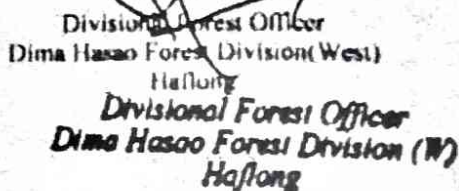 Divisional Forest Officer
Dima Hasao Forest Division(West)
Haflong
Divisional Forest Officer
Dima Hasao Forest Division (W)
Haflong